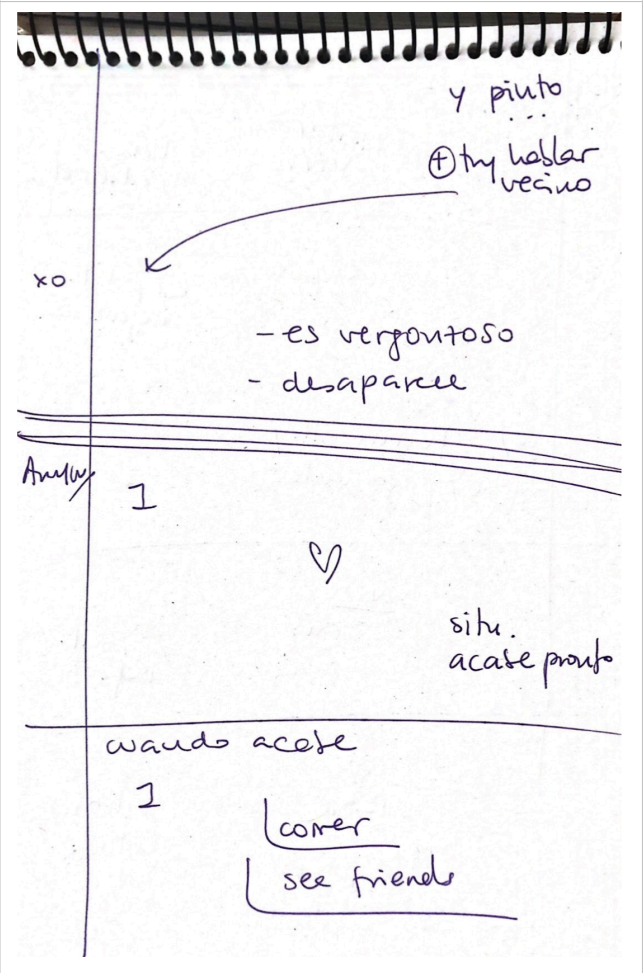 y pinto
...
+ try hablar
vecino
xo
- es vergontoso
- desaparece
1
situ.
acabe pronto
cuando acabe
1
correr
see friends